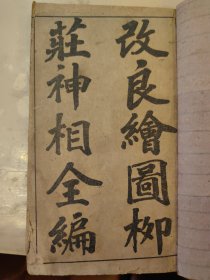 改良繪圖柳
莊神相全編